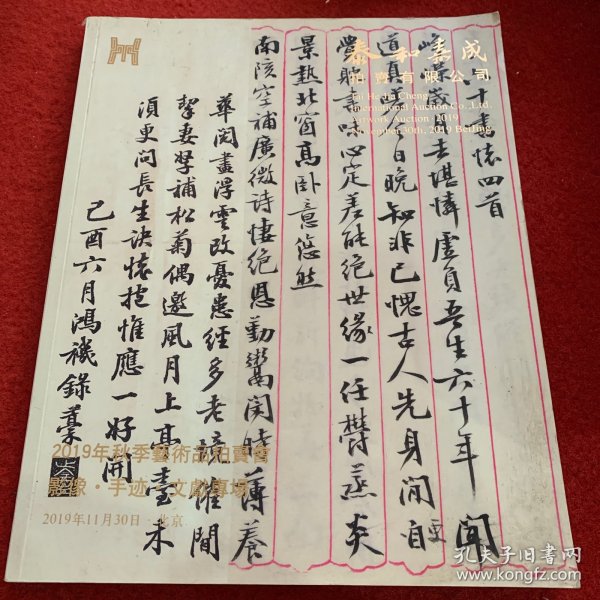 泰和嘉成
拍賣有限公司
Tai He Jia Cheng
International Auction Co.,Ltd.
Artwork Auction · 2019
November 30th, 2019 Beijing
十書懷四首
去堪憐虛負吾生六十年聞
道真日晚知非已愧古人先身閒自
覺書味心定差能絕世緣一任鬱蒸炎
景熱北窗高卧意悠然
南陔空補廣微詩悽絕恩勤鬻閔時薄養
華閥盡浮雲改憂患經多老境催閒
挈妻孥補松菊偶邀風月上高臺未
須更問長生訣懷抱惟應一好開
己酉六月鴻禨錄稾
2019年秋季藝術品拍賣會
影像·手迹·文獻專場
2019年11月30日·北京
孔夫子旧书网
www.kongfz.com